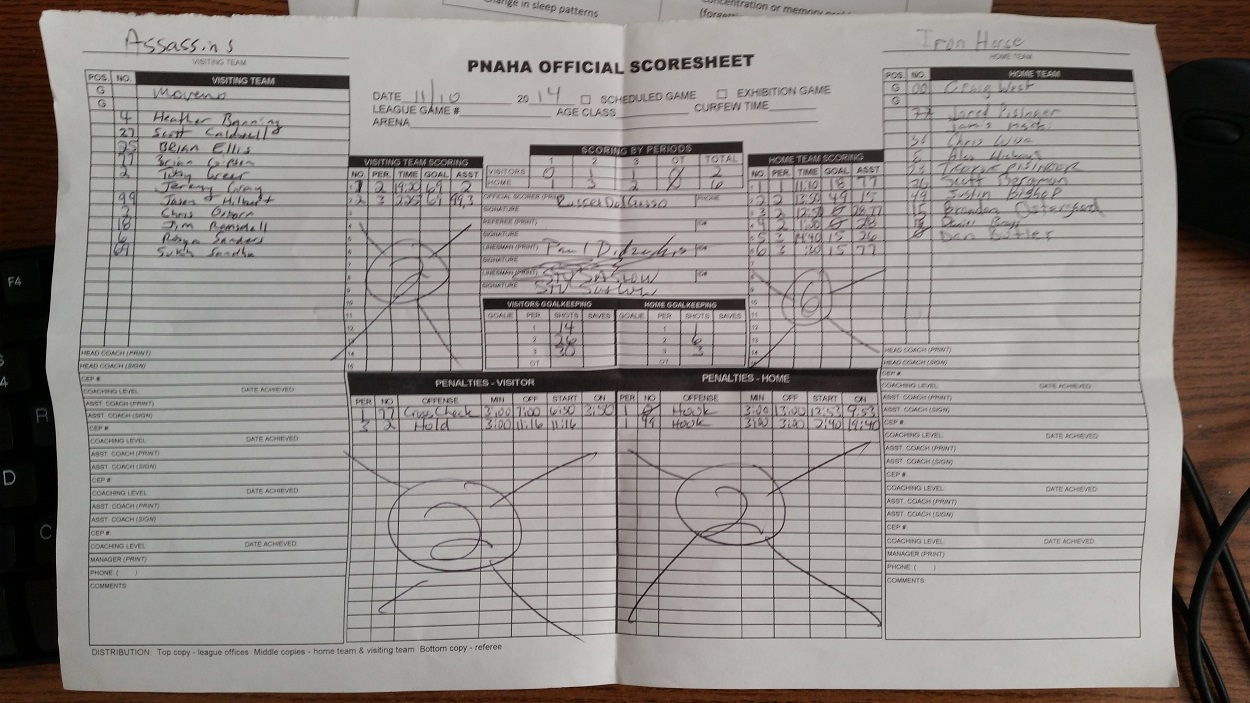 ange in sleep patterns
Assassins
VISITING TEAM
PNAHA OFFICIAL SCORESHEET
Iron Horse
HOME TEAM
DATE 11/10 2014 SCHEDULED GAME EXHIBITION GAME
LEAGUE GAME # AGE CLASS CURFEW TIME
ARENA
POS. NO. VISITING TEAM
G Moreno
G
4 Heather Browning
27 Scott Caldwell
25 BRIAN ELLIS
77 Brian Gipson
2 Toby Greer
Jeremy Gray
99 Jason Hilbert
Chris Osborn
18 Jim Ramsdell
6 Robyn Sanders
69 Sukh Sandhu
HEAD COACH (PRINT)
HEAD COACH (SIGN)
CEP #
COACHING LEVEL DATE ACHIEVED
ASST. COACH (PRINT)
ASST. COACH (SIGN)
CEP #
COACHING LEVEL DATE ACHIEVED
ASST. COACH (PRINT)
ASST. COACH (SIGN)
CEP #
COACHING LEVEL DATE ACHIEVED
ASST. COACH (PRINT)
ASST. COACH (SIGN)
CEP #
COACHING LEVEL DATE ACHIEVED
MANAGER (PRINT)
PHONE ( )
COMMENTS:
VISITING TEAM SCORING
NO. PER. TIME GOAL ASST
1 2 19:20 69 2
2 3 2:25 69 99,3
2
SCORING BY PERIODS
1 2 3 OT TOTAL
VISITORS 0 1 1 0 2
HOME 1 3 2 6
OFFICIAL SCORER (PRINT) PHONE
SIGNATURE
REFEREE (PRINT) C#
SIGNATURE
LINESMAN (PRINT) Paul C#
SIGNATURE
LINESMAN (PRINT) STV SASLOW C#
SIGNATURE STV Saslow
VISITORS GOALKEEPING
GOALIE PER SHOTS SAVES
1 14
2 26
3 30
OT
HOME GOALKEEPING
GOALIE PER SHOTS SAVES
1 1
2 6
3 3
OT
HOME TEAM SCORING
NO. PER. TIME GOAL ASST
1 1 11:10 18 77
2 2 13:50 49 15
3 2 12:50 0 28,77
4 2 1:30 0 28
5 3 14:40 15 26
6 3 1:30 15 77
6
POS. NO. HOME TEAM
G 00 Craig West
G
77 Jared Pisinger
Chris
TRAVIS PISINGER
26 Scott Bergman
49 Justin Bishop
15 Brandon
18
0 Dan Butler
HEAD COACH (PRINT)
HEAD COACH (SIGN)
CEP #
COACHING LEVEL DATE ACHIEVED
ASST. COACH (PRINT)
ASST. COACH (SIGN)
CEP #
COACHING LEVEL DATE ACHIEVED
ASST. COACH (PRINT)
ASST. COACH (SIGN)
CEP #
COACHING LEVEL DATE ACHIEVED
ASST. COACH (PRINT)
ASST. COACH (SIGN)
CEP #
COACHING LEVEL DATE ACHIEVED
MANAGER (PRINT)
PHONE ( )
COMMENTS:
PENALTIES - VISITOR
PER NO OFFENSE MIN OFF START ON
1 77 Cross Check 3:00 7:00 6:50 3:50
3 2 Hold 3:00 11:16 11:16
2
PENALTIES - HOME
PER NO OFFENSE MIN OFF START ON
1 0 Hook 3:00 13:00 12:53 9:53
1 49 Hook 3:00 3:00 2:40 19:40
2
DISTRIBUTION: Top copy - league offices Middle copies - home team & visiting team Bottom copy - referee
F4
R
D
C